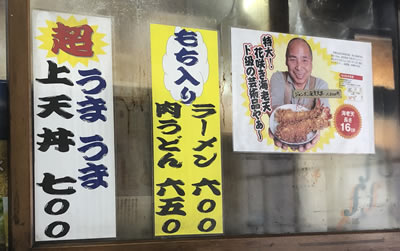 超
うまうま
上天丼 七〇〇
もち入り
ラーメン 六〇〇
肉うどん 六五〇
特大!
花咲き海老天
ド優の芸術品やぁ〜
海老天
長さ
16cm